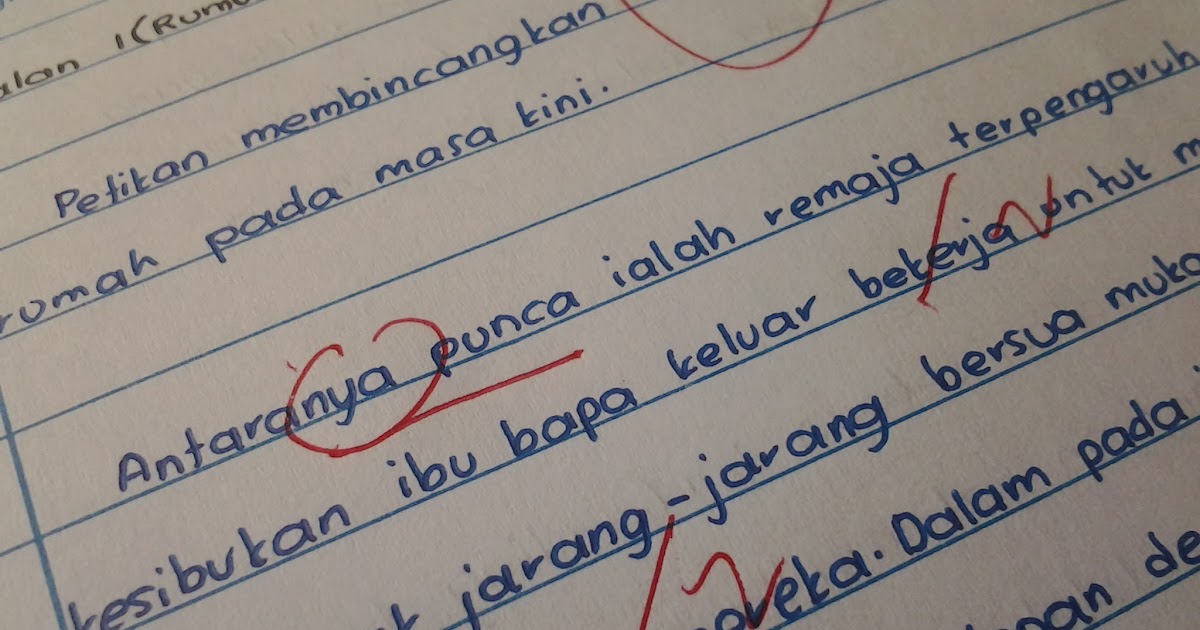 (Rum
Petikan membincangkan
rumah pada masa kini.
Antaranya punca ialah remaja terpengaruh
kesibukan ibu bapa keluar bekerja untuk m
jarang-jarang bersua muka
Dalam pada
de